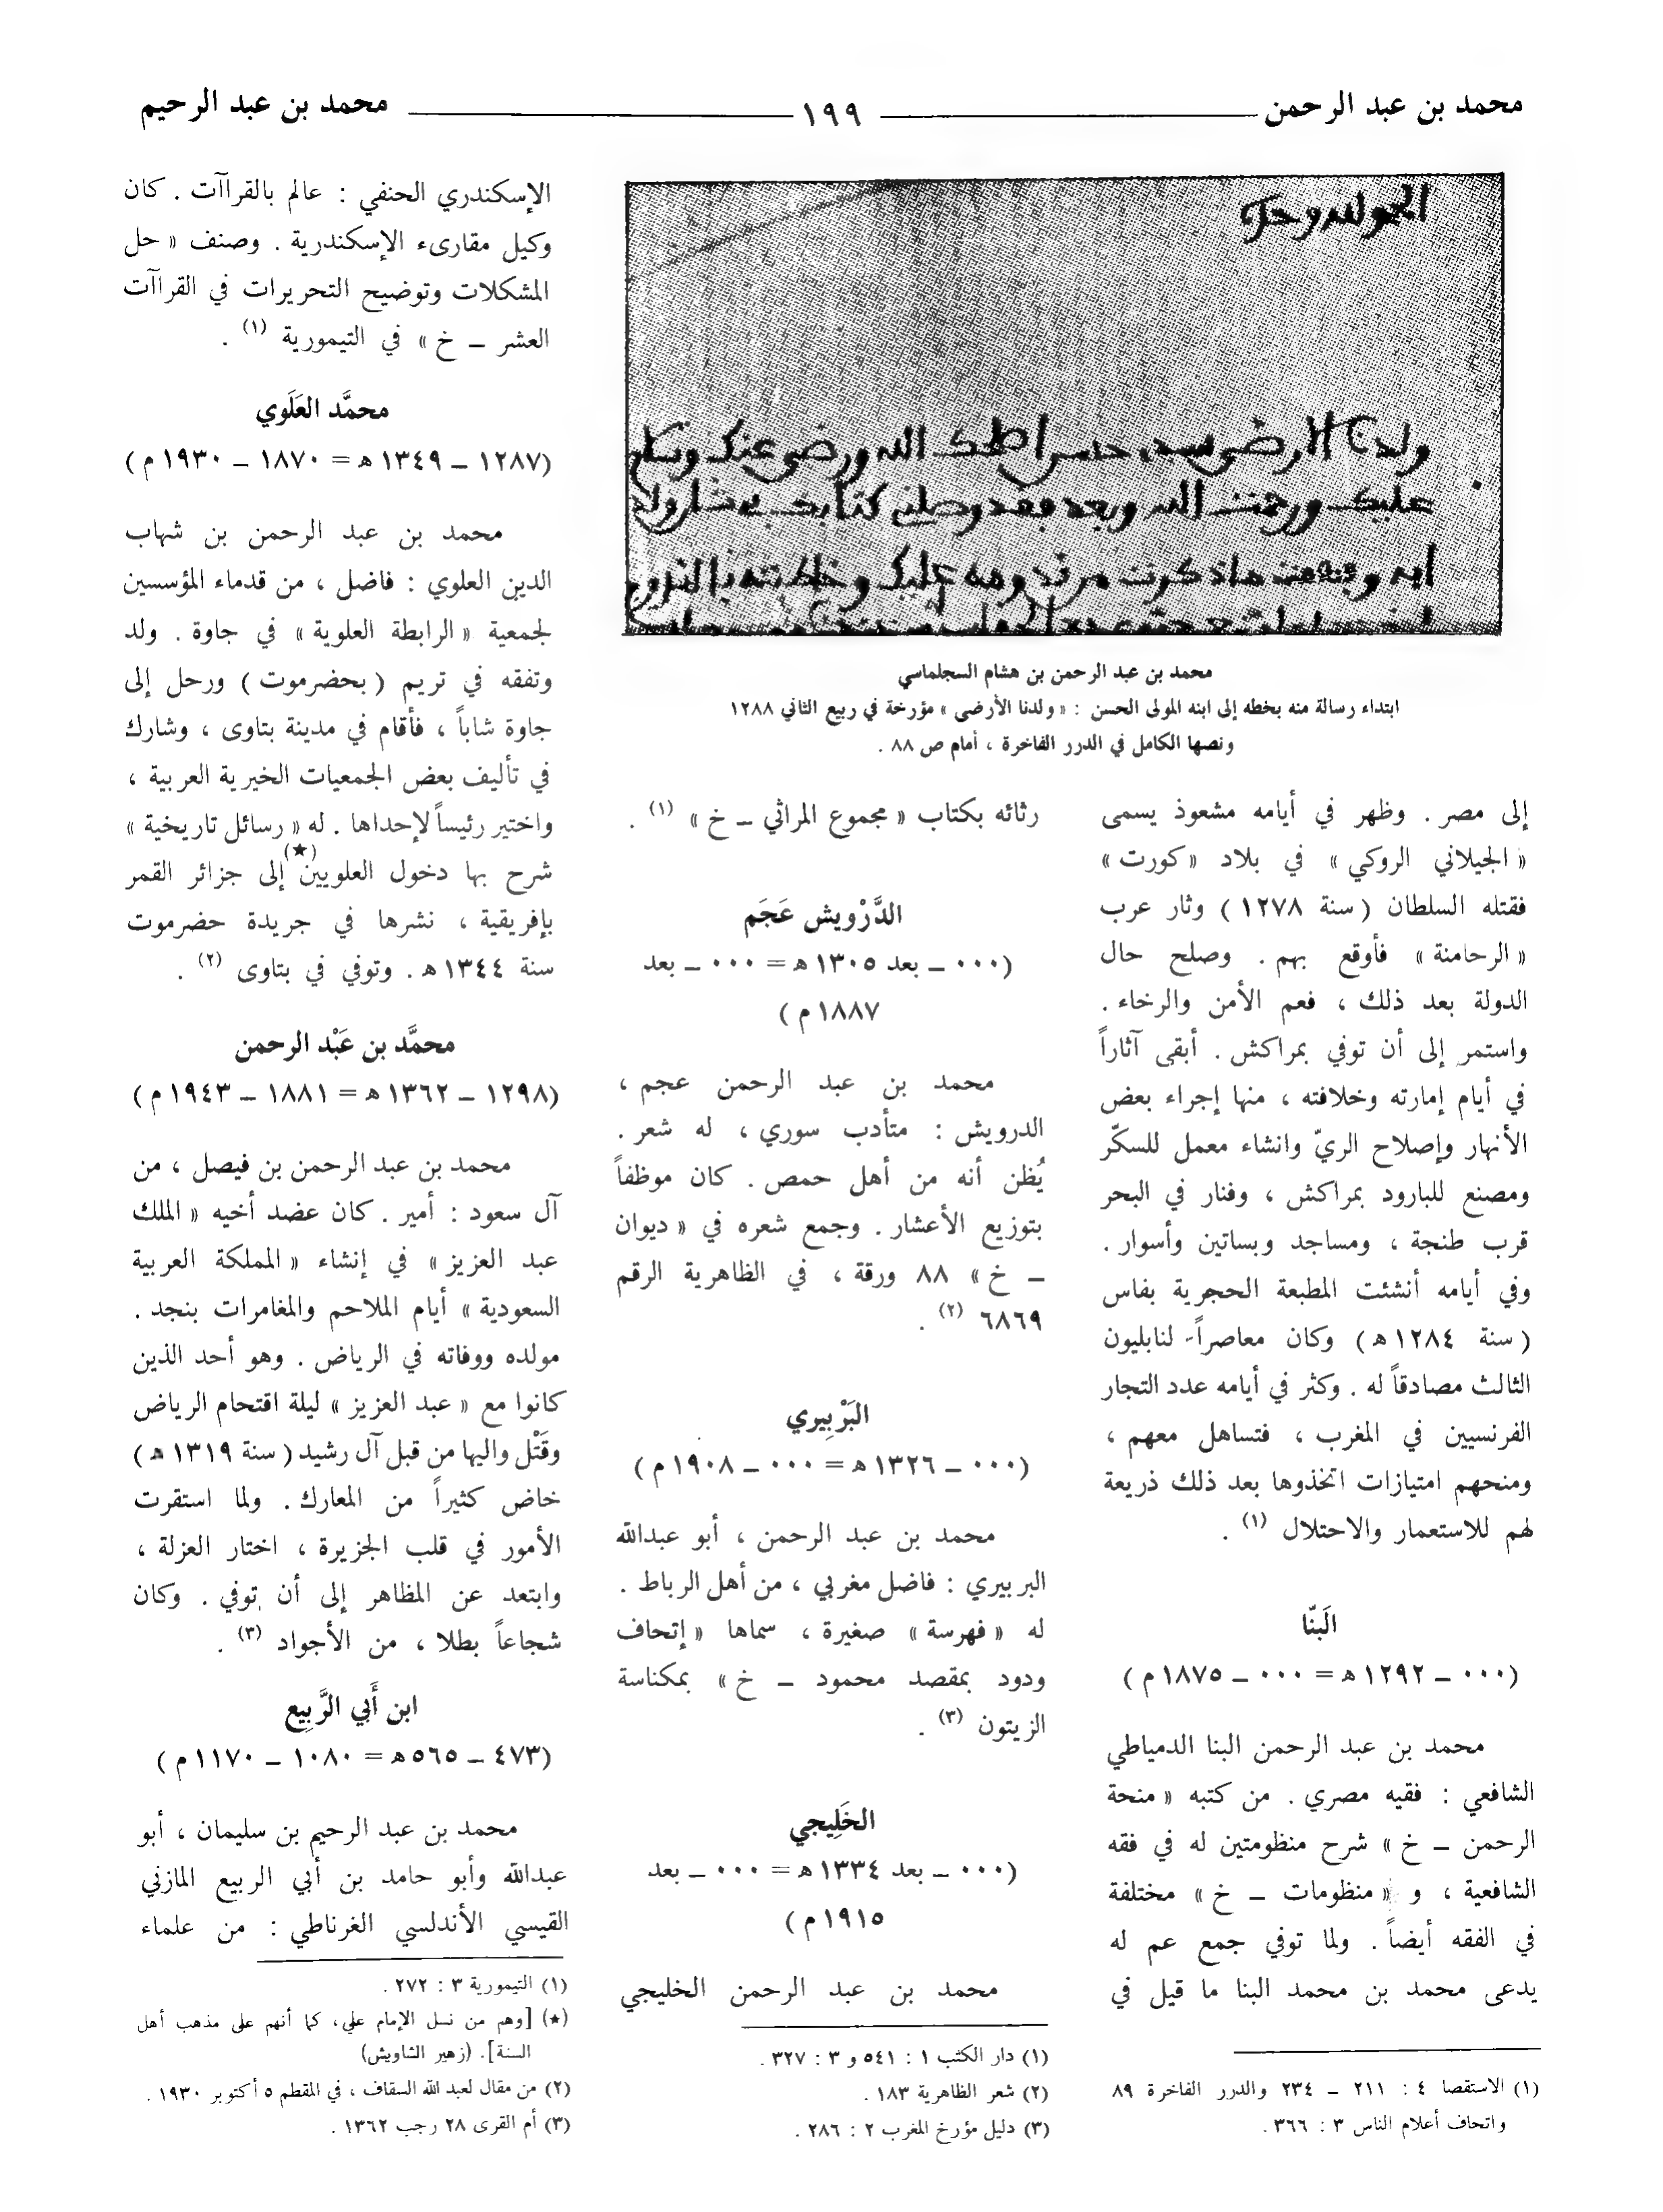 محمد بن عبد الرحمن
١٩٩
محمد بن عبد الرحيم
الحمد لله وحده
محمد بن عبد الرحمن بن هشام السجلماسي
ابتداء رسالة منه بخطه إلى ابنه المولى الحسن : « ولدنا الأرضى » مؤرخة في ربيع الثاني ١٢٨٨
ونصها الكامل في الدرر الفاخرة ، أمام ص ٨٨ .
إلى مصر . وظهر في أيامه مشعوذ يسمى
« الجيلاني الروكي » في بلاد « كورت »
فقتله السلطان ( سنة ١٢٧٨ ) وثار عرب
« الرحامنة » فأوقع بهم . وصلح حال
الدولة بعد ذلك ، فعم الأمن والرخاء .
واستمر إلى أن توفي بمراكش . أبقى آثاراً
في أيام إمارته وخلافته ، منها إجراء بعض
الأنهار وإصلاح الريّ وانشاء معمل للسكّر
ومصنع للبارود بمراكش ، وفنار في البحر
قرب طنجة ، ومساجد وبساتين وأسوار .
وفي أيامه أنشئت المطبعة الحجرية بفاس
( سنة ١٢٨٤ هـ ) وكان معاصراً لنابليون
الثالث مصادقاً له . وكثر في أيامه عدد التجار
الفرنسيين في المغرب ، فتساهل معهم ،
ومنحهم امتيازات اتخذوها بعد ذلك ذريعة
لهم للاستعمار والاحتلال (١) .
الَبنّا
(٠٠٠ ــ ١٢٩٢ هـ = ٠٠٠ ــ ١٨٧٥ م )
محمد بن عبد الرحمن البنا الدمياطي
الشافعي : فقيه مصري . من كتبه « منحة
الرحمن ــ خ » شرح منظومتين له في فقه
الشافعية ، و « منظومات ــ خ » مختلفة
في الفقه أيضاً . ولما توفي جمع عم له
يدعى محمد بن محمد البنا ما قيل في
(١) الاستقصا ٤ : ٢١١ ــ ٢٣٤ والدرر الفاخرة ٨٩
واتحاف أعلام الناس ٣ : ٣٦٦ .
رثائه بكتاب « مجموع المراثي ــ خ » (١) .
الدَّرْويش عَجَم
(٠٠٠ ــ بعد ١٣٠٥ هـ = ٠٠٠ ــ بعد
١٨٨٧ م )
محمد بن عبد الرحمن عجم ،
الدرويش : متأدب سوري ، له شعر .
يُظن أنه من أهل حمص . كان موظفاً
بتوزيع الأعشار . وجمع شعره في « ديوان
ــ خ » ٨٨ ورقة ، في الظاهرية الرقم
٦٨٦٩ (٢) .
البَرْبيري
(٠٠٠ ــ ١٣٢٦ هـ = ٠٠٠ ــ ١٩٠٨ م )
محمد بن عبد الرحمن ، أبو عبدالله
البربيري : فاضل مغربي ، من أهل الرباط .
له « فهرسة » صغيرة ، سماها « إتحاف
ودود بمقصد محمود ــ خ » بمكناسة
الزيتون (٣) .
الخَلِيجي
(٠٠٠ ــ بعد ١٣٣٤ هـ = ٠٠٠ ــ بعد
١٩١٥ م )
محمد بن عبد الرحمن الخليجي
(١) دار الكتب ١ : ٥٤١ و ٣ : ٣٢٧ .
(٢) شعر الظاهرية ١٨٣ .
(٣) دليل مؤرخ المغرب ٢ : ٢٨٦ .
الإسكندري الحنفي : عالم بالقراآت . كان
وكيل مقارىء الإسكندرية . وصنف « حل
المشكلات وتوضيح التحريرات في القراآت
العشر ــ خ » في التيمورية (١) .
محمَّد العَلَوي
(١٢٨٧ ــ ١٣٤٩ هـ = ١٨٧٠ ــ ١٩٣٠ م )
محمد بن عبد الرحمن بن شهاب
الدين العلوي : فاضل ، من قدماء المؤسسين
لجمعية « الرابطة العلوية » في جاوة . ولد
وتفقه في تريم ( بحضرموت ) ورحل إلى
جاوة شاباً ، فأقام في مدينة بتاوى ، وشارك
في تأليف بعض الجمعيات الخيرية العربية ،
واختير رئيساً لإحداها . له « رسائل تاريخية »
شرح بها دخول العلويين (★) إلى جزائر القمر
بإفريقية ، نشرها في جريدة حضرموت
سنة ١٣٤٤ هـ . وتوفي في بتاوى (٢) .
محمَّد بن عَبْد الرحمن
(١٢٩٨ ــ ١٣٦٢ هـ = ١٨٨١ ــ ١٩٤٣ م )
محمد بن عبد الرحمن بن فيصل ، من
آل سعود : أمير . كان عضد أخيه « الملك
عبد العزيز » في إنشاء « المملكة العربية
السعودية » أيام الملاحم والمغامرات بنجد .
مولده ووفاته في الرياض . وهو أحد الذين
كانوا مع « عبد العزيز » ليلة اقتحام الرياض
وقَتْل واليها من قبل آل رشيد ( سنة ١٣١٩ هـ )
خاض كثيراً من المعارك . ولما استقرت
الأمور في قلب الجزيرة ، اختار العزلة ،
وابتعد عن المظاهر إلى أن توفي . وكان
شجاعاً بطلا ، من الأجواد (٣) .
ابن أَبي الرَّبِيع
(٤٧٣ ــ ٥٦٥ هـ = ١٠٨٠ ــ ١١٧٠ م )
محمد بن عبد الرحيم بن سليمان ، أبو
عبدالله وأبو حامد بن أبي الربيع المازني
القيسي الأندلسي الغرناطي : من علماء
(١) التيمورية ٣ : ٢٧٢ .
(★) [وهم من نسل الإمام علي، كما أنهم على مذهب أهل
السنة]. (زهير الشاويش)
(٢) من مقال لعبد الله السقاف ، في المقطم ٥ أكتوبر ١٩٣٠ .
(٣) أم القرى ٢٨ رجب ١٣٦٢ .